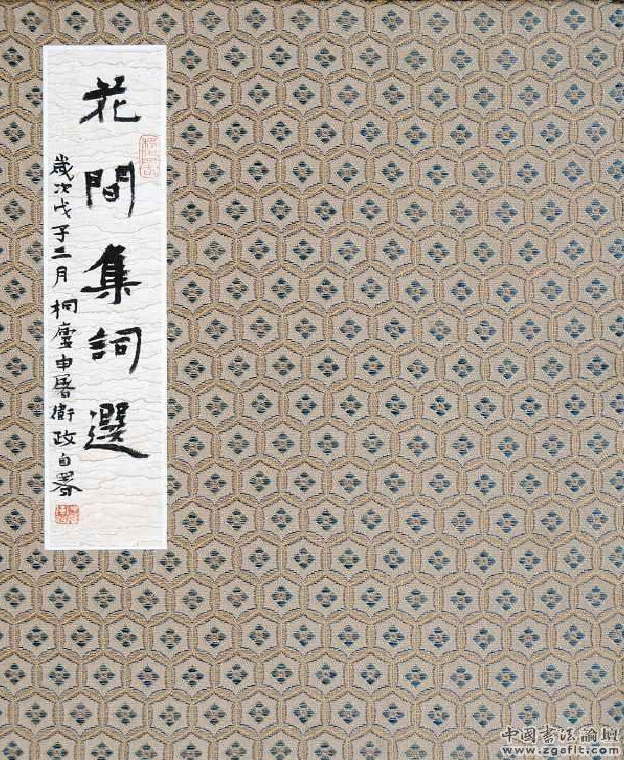 花間集詞選
歲次戊子二月桐廬申屠衛政自署
中国书法论坛
www.zgsflt.com